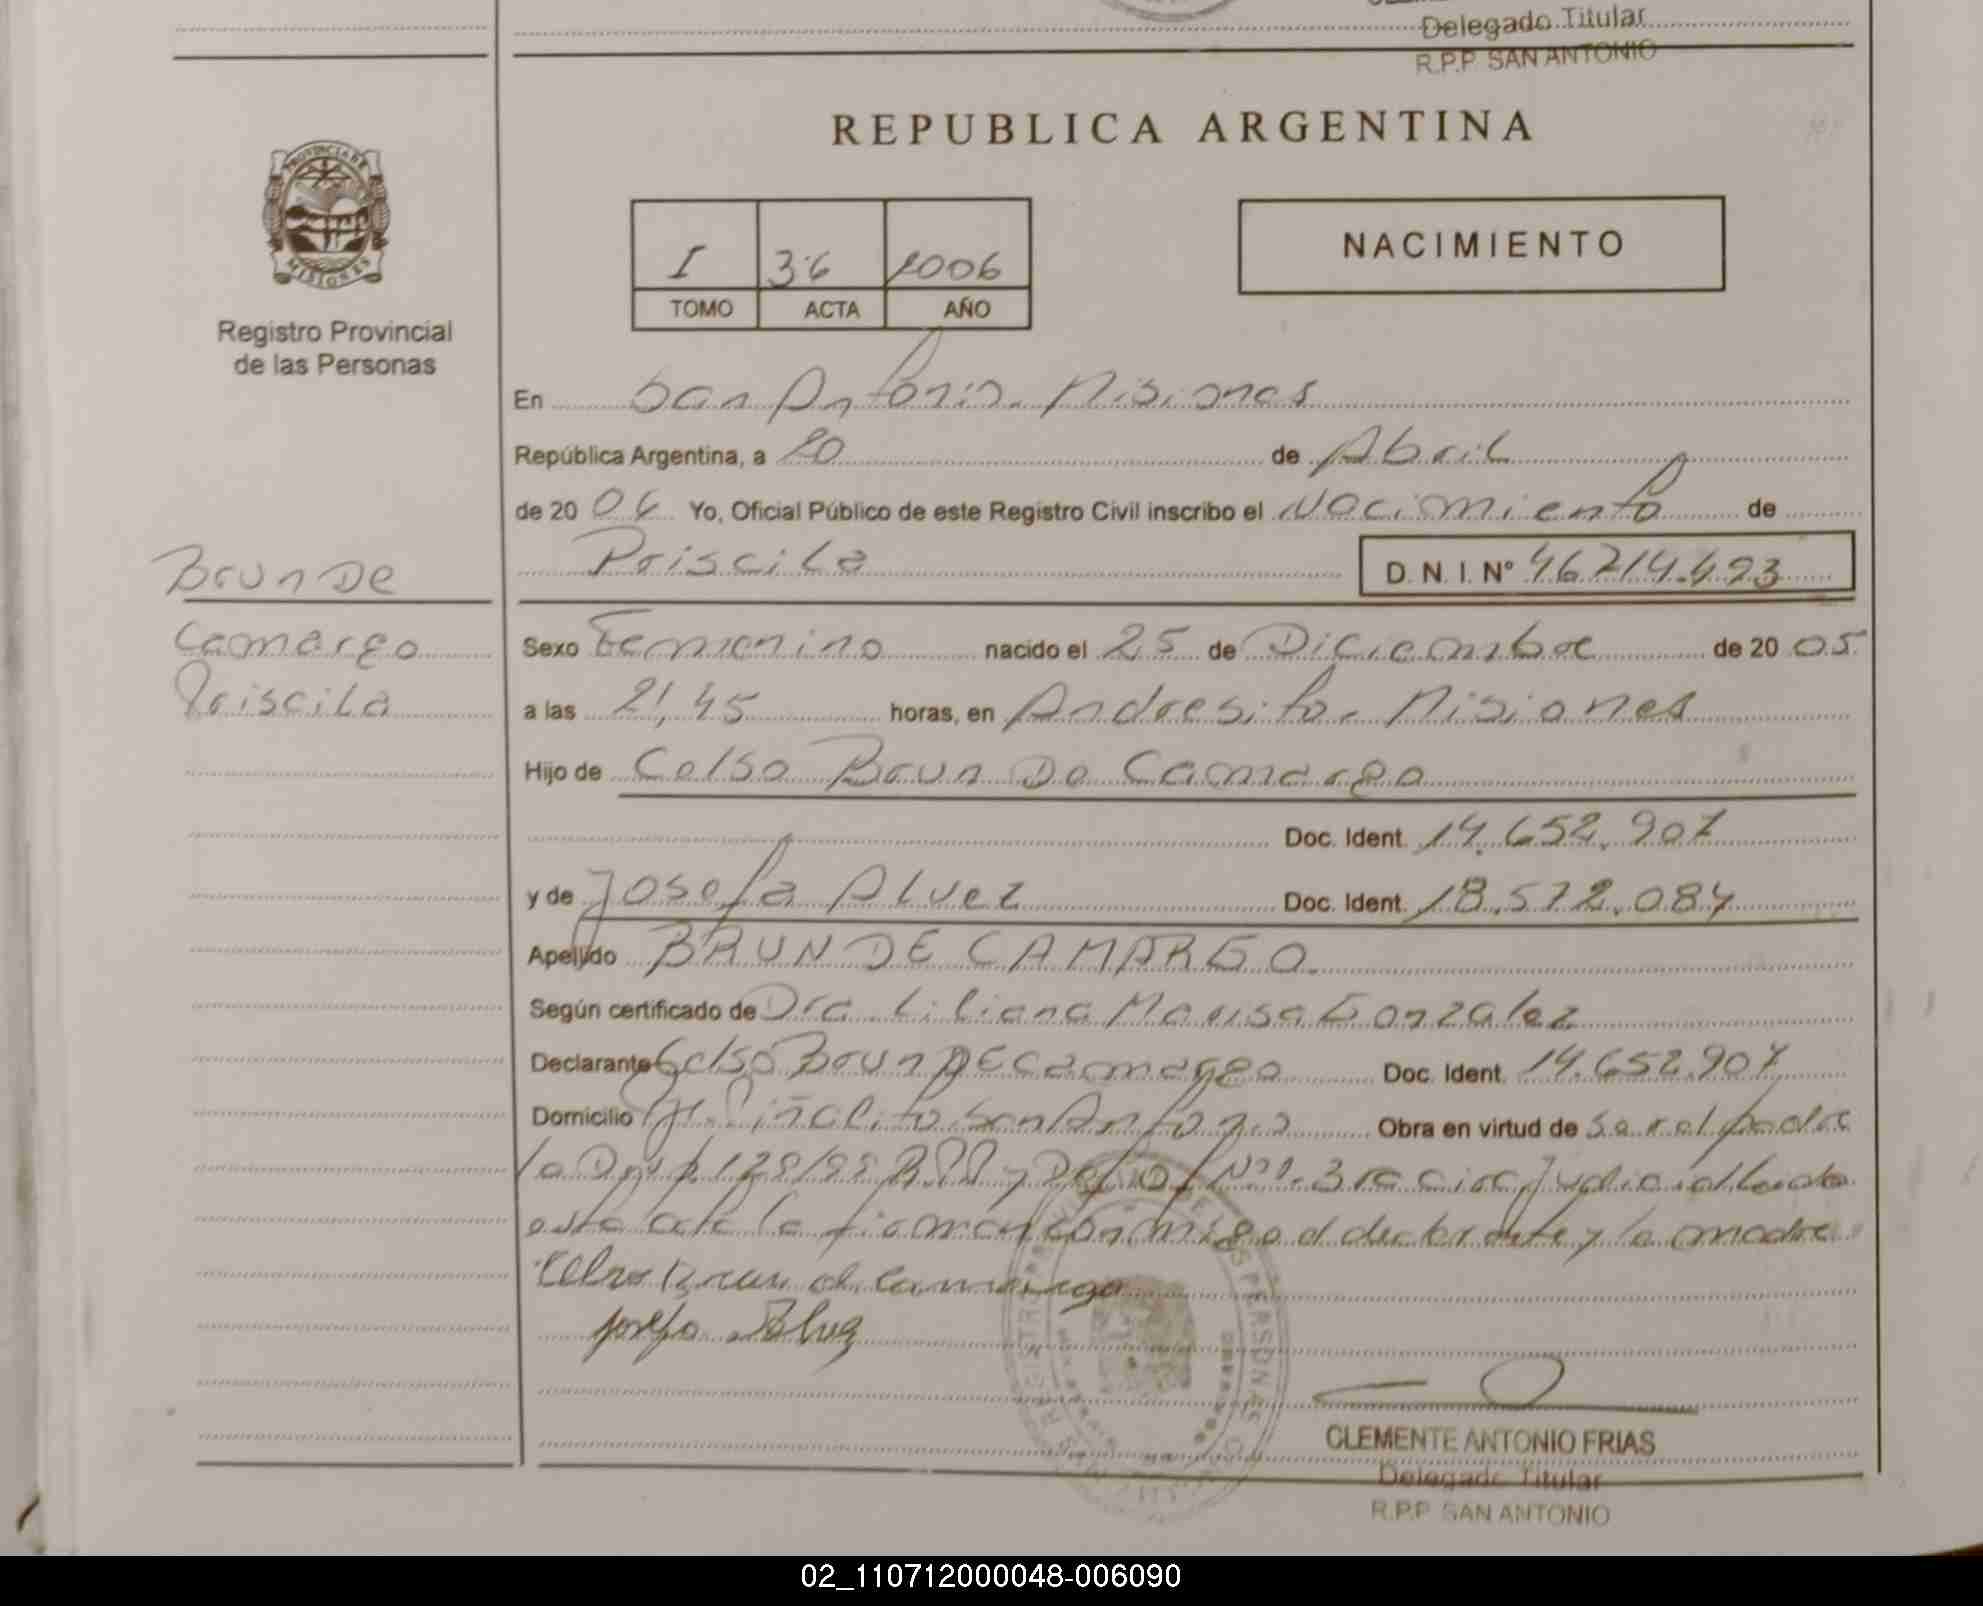 Delegado Titular
R.P.P. SAN ANTONIO
REPUBLICA ARGENTINA
PROVINCIA DE
MISIONES
Registro Provincial
de las Personas
I 36 2006
TOMO ACTA AÑO
NACIMIENTO
En San Antonio. Misiones
República Argentina, a 20 de Abril
de 20 06 Yo, Oficial Público de este Registro Civil inscribo el Nacimiento de
Priscila D. N. I. Nº 46714.493
Brun De
Camargo
Priscila
Sexo Femenino nacido el 25 de Diciembre de 20 05
a las 21,45 horas, en Andresito. Misiones
Hijo de Celso Brun De Camargo
Doc. Ident. 14.652.907
y de Josefa Alvez Doc. Ident. 18.572.084
Apellido BRUN DE CAMARGO.
Según certificado de Dra. Liliana Marisa Gonzalez
Declarante Celso Brun DE Camargo Doc. Ident. 14.652.907
Domicilio Piñalito San Antonio Obra en virtud de ser el padre
la 3ra circ Judicial leida
esta acta la firman conmigo el declarante y la madre
Celso Brun de Camargo
Josefa Alvez
CLEMENTE ANTONIO FRIAS
Delegado Titular
R.P.P. SAN ANTONIO
02_110712000048-006090